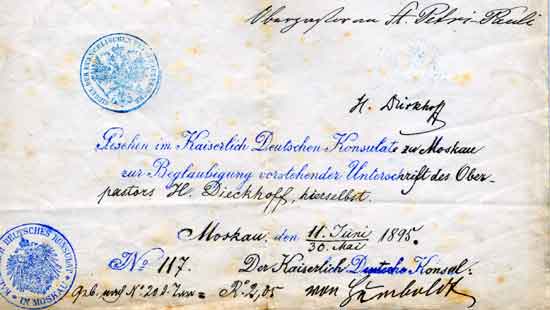 Oberpastor an St. Petri-Pauli
H. Dieckhoff
Gesehen im Kaiserlich Deutschen Konsulate zu Moskau
zur Beglaubigung vorstehender Unterschrift des Ober-
pastors H. Dieckhoff, hierselbst.
Moskau, den 11. Juni / 30. Mai 1895.
No 117. Der Kaiserlich Deutsche Konsul:
Geb. nach No 20 d. Tar = R. 2,05 von Humboldt
DEUTSCHES KONSULAT
IN MOSKAU